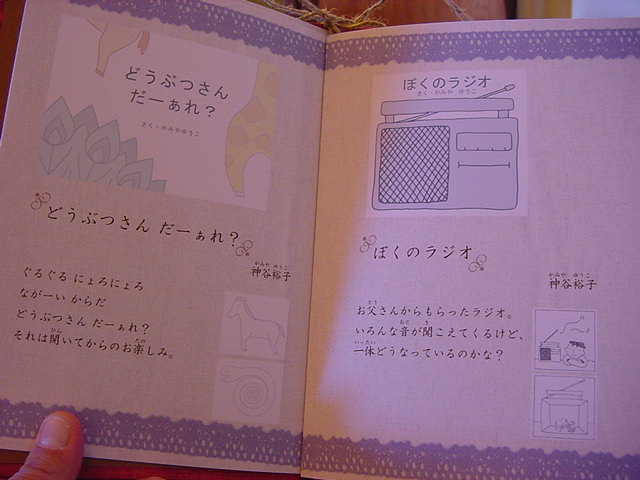 どうぶつさん
だーぁれ？
さく・かみやゆうこ
どうぶつさん だーぁれ？
かみや ゆうこ
神谷裕子
ぐるぐる にょろにょろ
ながーい からだ
どうぶつさん だーぁれ？
それは開いてからのお楽しみ。
ぼくのラジオ
さく・かみや ゆうこ
ぼくのラジオ
かみや ゆうこ
神谷裕子
お父さんからもらったラジオ。
いろんな音が聞こえてくるけど、
一体どうなっているのかな？